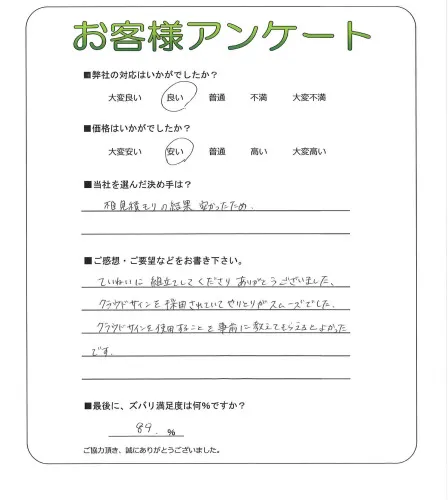 お客様アンケート
■弊社の対応はいかがでしたか？
大変良い 良い 普通 不満 大変不満
■価格はいかがでしたか？
大変安い 安い 普通 高い 大変高い
■当社を選んだ決め手は？
相見積もりの結果 安かったため.
■ご感想・ご要望などをお書き下さい。
ていねいに組立てしてくださりありがとうございました、
クラウドサインを採用されていてやりとりがスムーズでした.
クラウドサインを使用することを事前に教えてもらえるとよかった
です.
■最後に、ズバリ満足度は何%ですか？
89. %
ご協力頂き、誠にありがとうございました。